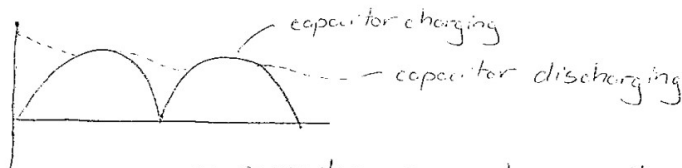 capacitor charging
capacitor discharging